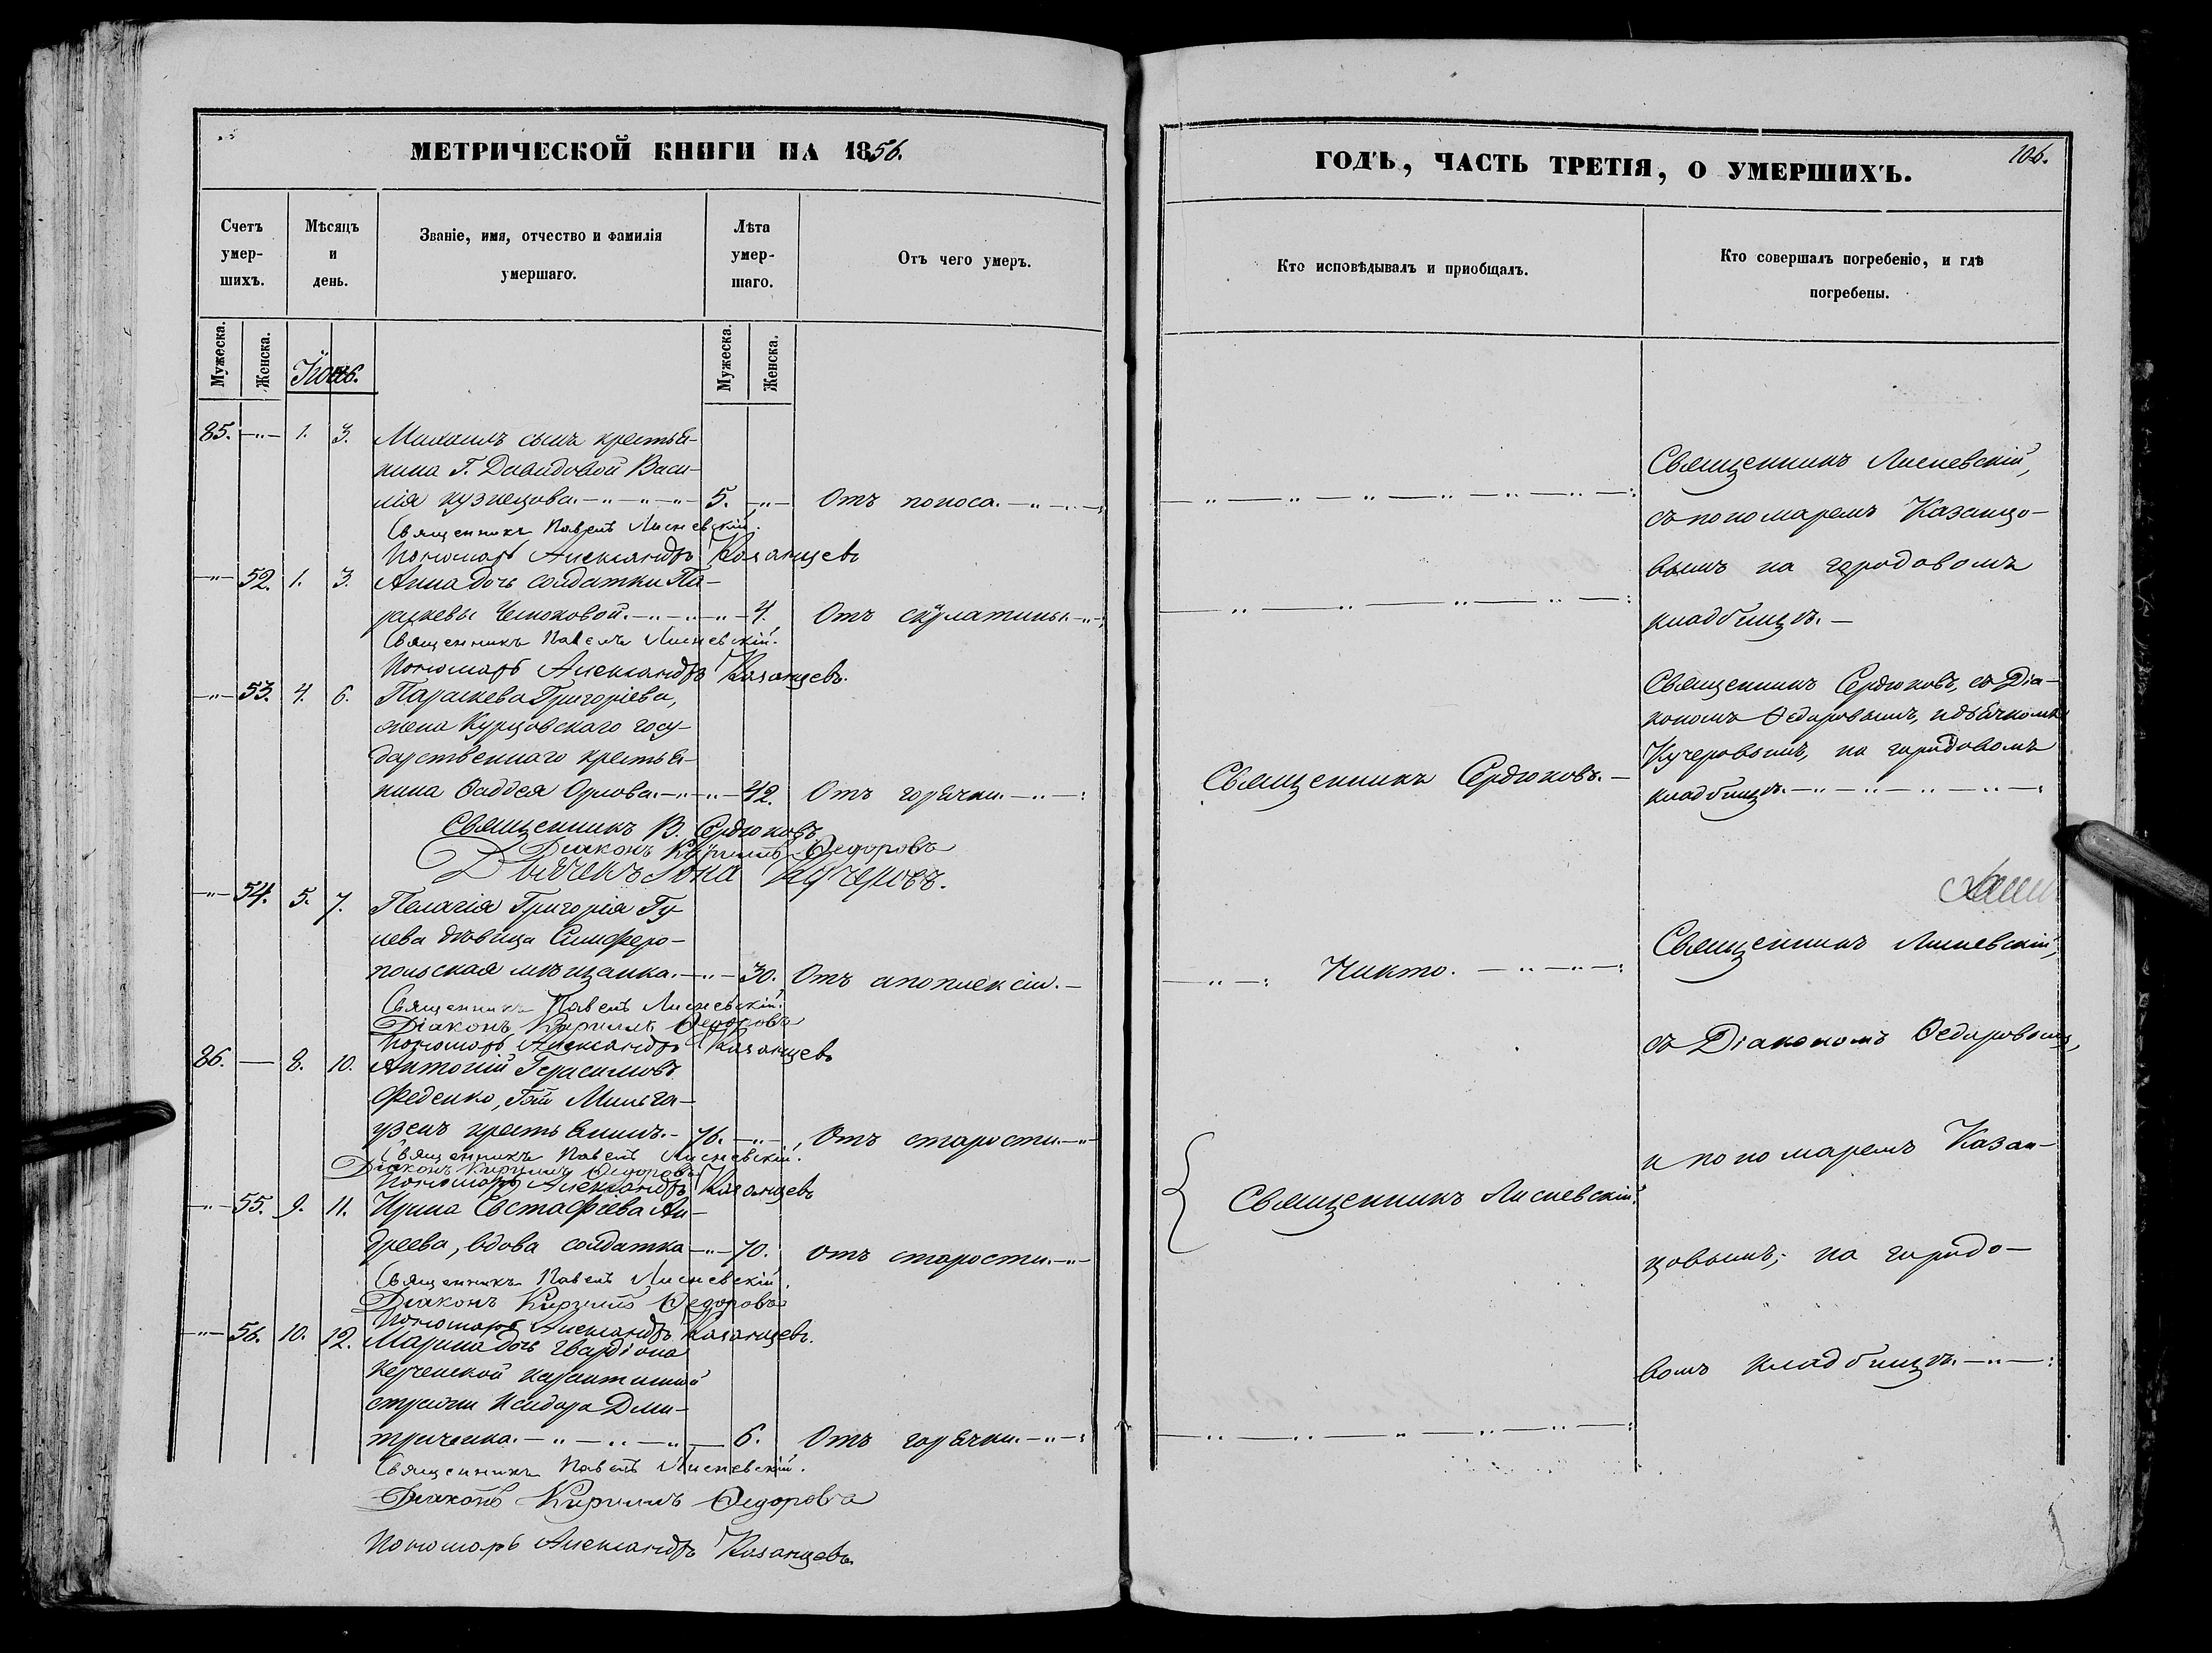 МЕТРИЧЕСКОЙ КНИГИ НА 1856.
Счетъ умер-шихъ.
Мѣсяцъ и день.
Званіе, имя, отчество и фамилія умершаго.
Лѣта умер-шаго.
Отъ чего умеръ.
Мужеска. Женска.
Мужеска. Женска.
Іюнь.
85. —"— 1. 3. Михаилъ сынъ крестья-
нина Г. Давидовой Васи-
лія Кузнецова.—"—"—"— 5. —"— Отъ поноса.—"—
Священникъ Павелъ Лисневскій.
Пономарь Александръ Казанцевъ
—"— 52. 1. 3. Анна дочь солдатки Па-
раскевы Чемоковой.—"—"—"— 4. Отъ скулатины.—"—
Священникъ Павелъ Лисневскій.
Пономарь Александръ Казанцевъ.
—"— 53. 4. 6. Параскева Григоріева,
жена Курцовскаго госу-
дарственнаго крестья-
нина Ѳаддея Орлова.—"—"— 42. Отъ горячки.—"—:
Священникъ В. Сердюковъ
Діаконъ Кириллъ Ѳедоровъ
Дьячекъ Іона Кучеровъ.
—"— 54. 5. 7. Пелагія Григорія Гу-
лева дѣвица Симферо-
польская мѣщанка.—"— 30. Отъ апоплексіи.—
Священникъ Павелъ Лисневскій.
Діаконъ Кириллъ Ѳедоровъ
Пономарь Александръ Казанцевъ
86. — 8. 10. Антоній Герасимовъ
Феденко, Мильга-
узенъ крестьянинъ.— 76. —"— Отъ старости.—"—
Священникъ Павелъ Лисневскій.
Діаконъ Кириллъ Ѳедоровъ
Пономарь Александръ Казанцевъ
—"— 55. 9. 11. Ирина Евстафіева Ан-
дреева, вдова солдатка —"— 70. отъ старости.—"—
Священникъ Павелъ Лисневскій.
Діаконъ Кириллъ Ѳедоровъ
Пономарь Александръ Казанцевъ.
—"— 56. 10. 12. Марина дочь гвардіона
Керченской карантинной
стражи Исидора Дми-
триченка.—"—"—"— 6. Отъ горячки.—"—:
Священникъ Павелъ Лисневскій.
Діаконъ Кириллъ Ѳедоровъ
Пономарь Александръ Казанцевъ
ГОДЪ, ЧАСТЬ ТРЕТІЯ, О УМЕРШИХЪ.
106.
Кто исповѣдывалъ и приобщалъ.
Кто совершалъ погребеніе, и гдѣ погребены.
Священникъ Лисневскій,
съ пономаремъ Казанцо-
вымъ на городовомъ
кладбищѣ.—
Священникъ Сердюковъ.—
Священникъ Сердюковъ, съ Діа-
кономъ Ѳедоровымъ, и дьячкомъ
Кучеровымъ, на городовомъ
кладбищѣ.—"—"—"—"—:
—"—: Никто.—"—"—:
Священникъ Лисневскій,
съ Діакономъ Ѳедоровымъ,
и пономаремъ Казан-
Священникъ Лисневскій.
цовымъ, на городо-
вомъ кладбищѣ.—"—: